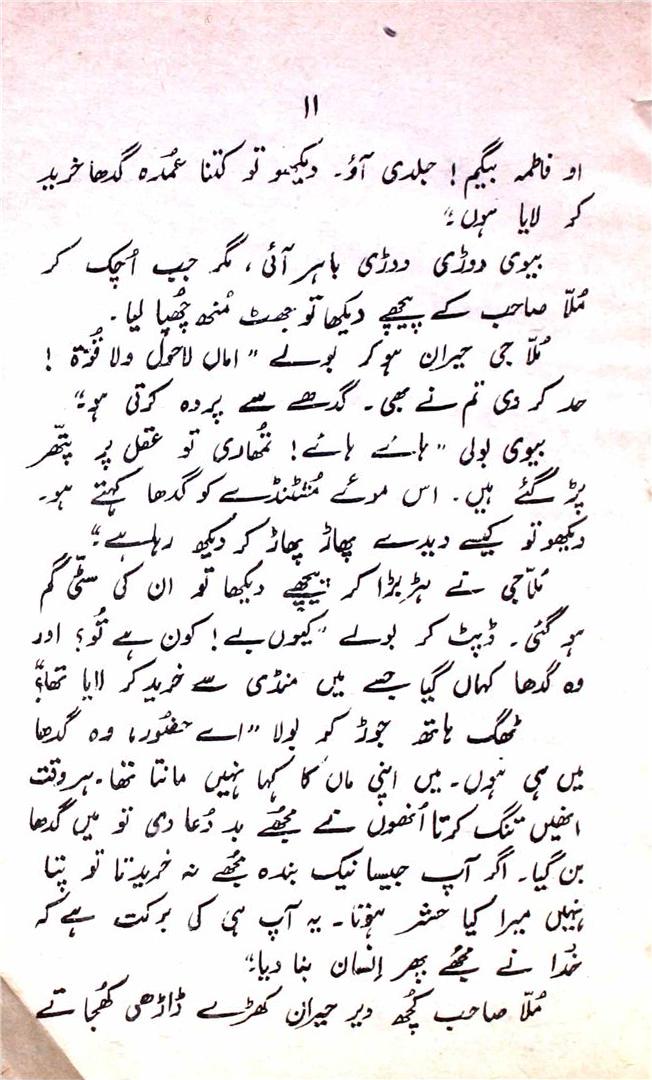 ۱۱
او فاطمہ بیگم! جلدی آؤ۔ دیکھو تو کتنا عمُدہ گدھا خرید
کر لایا ہوں۔"
بیوی دوڑی دوڑی باہر آئی، مگر جب اُچک کر
مُلّا صاحب کے پیچھے دیکھا تو جھٹ مُنھ چھُپا لیا۔
مُلّا جی حیران ہو کر بولے "اماں لاحول ولا قُوۃ!
حد کر دی تم نے بھی۔ گدھے سے پردہ کرتی ہو۔"
بیوی بولی "ہائے ہائے! تمُھاری تو عقل پر پتّھر
پڑ گئے ہیں۔ اس موئے مُشٹنڈے کو گدھا کہتے ہو۔
دیکھو تو کیسے دیدے پھاڑ پھاڑ کر دیکھ رہا ہے۔"
مُلّا جی نے ہڑبڑا کر پیچھے دیکھا تو ان کی سٹّی گم
ہو گئی۔ ڈپٹ کر بولے "کیوں بے! کون ہے تُو؟ اور
وہ گدھا کہاں گیا جسے میں منڈی سے خرید کر لایا تھا؟"
ٹھگ ہاتھ جوڑ کر بولا "اے حضُور، وہ گدھا
میں ہی ہوں۔ میں اپنی ماں کا کہا نہیں مانتا تھا۔ ہر وقت
انھیں تنگ کرتا اُنھوں نے مجھُے بد دُعا دی تو میں گدھا
بن گیا۔ اگر آپ جیسا نیک بندہ مجھُے نہ خریدتا تو پتا
نہیں میرا کیا حشر ہوتا۔ یہ آپ ہی کی برکت ہے کہ
خُدا نے مجھُے پھر اِنسان بنا دیا۔"
مُلّا صاحب کچُھ دیر حیران کھڑے ڈاڑھی کھُجاتے